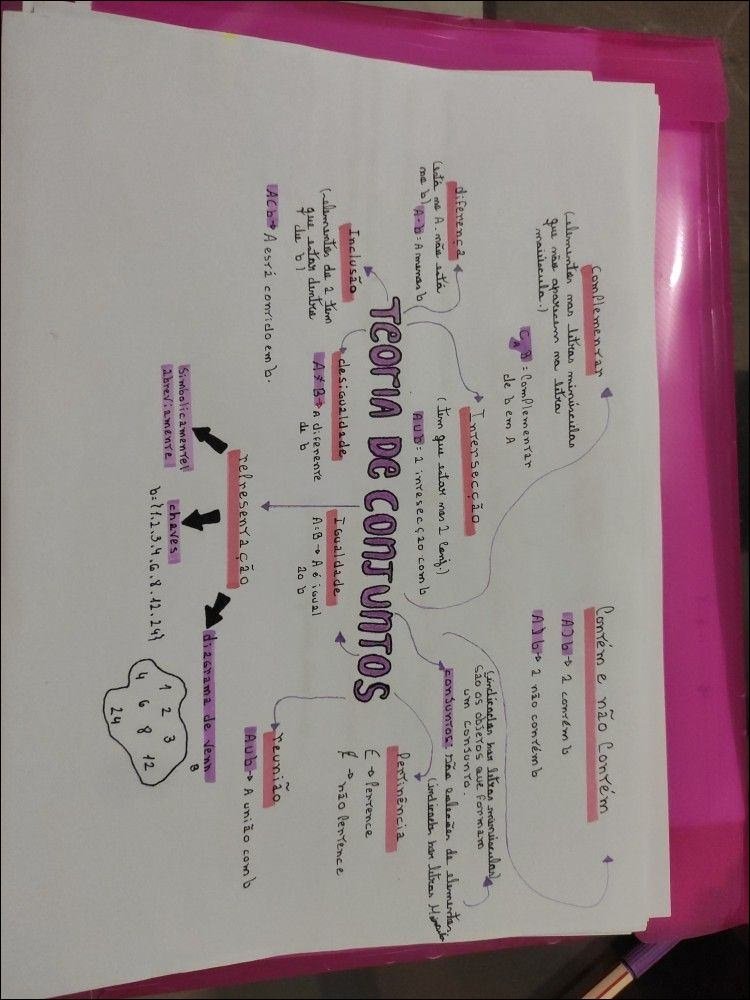 Complementar
(elementos nas letras minúsculas
que não aparecem na letra
maiúscula.)
C_A B = Complementar
de b em A
Contém e não Contém
A⊃b → 2 contém b
A⊅b → 2 não contém b
diferença
(está no A. não está
no b) A-b = A menos b
Intersecção
(tem que estar nos 2 conj.)
AUb = 2 intesecção com b
(indicados por letras minúsculas)
são os objetos que formam
um conjunto.
conjuntos: são coleções de elementos.
(indicados por letras
TEORIA DE CONJUNTOS
Inclusão
(elementos de 2 tem
que estar dentro
de b)
ACb → A está contido em b.
desigualdade
A≠B → A diferente
de b
Igualdade
A=B → A é igual
20 b
Pertinência
E → Pertence
∉ → não Pertence
representação
Simbolicamente/
abreviamente
chaves
b={1.2.3.4.6.8.12.24}
diagrama de venn
B
1 2 3
4 6 8 12
24
reunião
AUb → A união com b